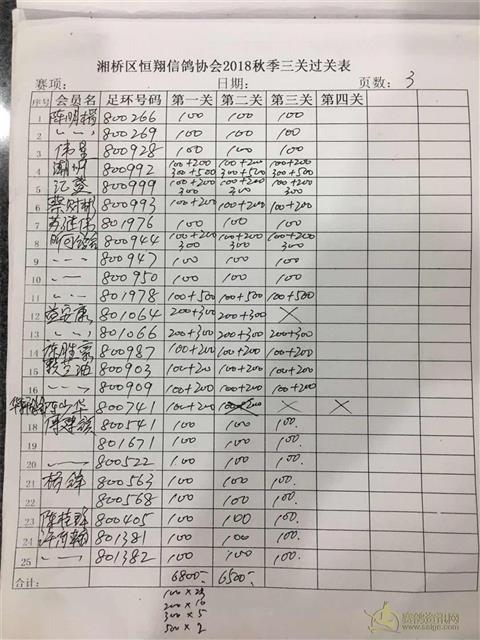 湘桥区恒翔信鸽协会2018秋季三关过关表
赛项: 日期: 页数: 3
序号 会员名 足环号码 第一关 第二关 第三关 第四关
1 800266 100 100 100
2 〃 800269 100 100 100
3 伟星 800928 100 100 100
4 潮州 800992 100+200 300+500 100+200 300+500 100+200 300+500
5 800999 100+200 300 100+200 300 100+200 300
6 800993 100+200 100+200 100+200
7 801976 100 100 100
8 800944 100+200 +300 100+200 +300 100+200 +300
9 〃 800947 100 100 100
10 〃 800950 100 100 100
11 〃 801978 100+500 100+500 100+500
12 益安康 801064 200+300 200+300 ×
13 〃 801066 200+300 200+300 200+300
14 陈胜豪 800987 100+200 100+200 100+200
15 800903 100+200 100+200 100+200
16 〃 800909 100+200 100+200 100+200
800741 100+200 100+200 × ×
18 800541 100 100 100.
19 801671 100 100 100.
20 〃 800522 100 100 100.
21 杨锋 800563 100 100 100.
22 800568 100 100 100.
23 800405 100 100 100.
24 801381 100 100 100.
25 〃 801382 100 100 100.
合计: 6800- 6500-
100×23
200×10
300×5
500×2
赛鸽资讯网
www.saige.com